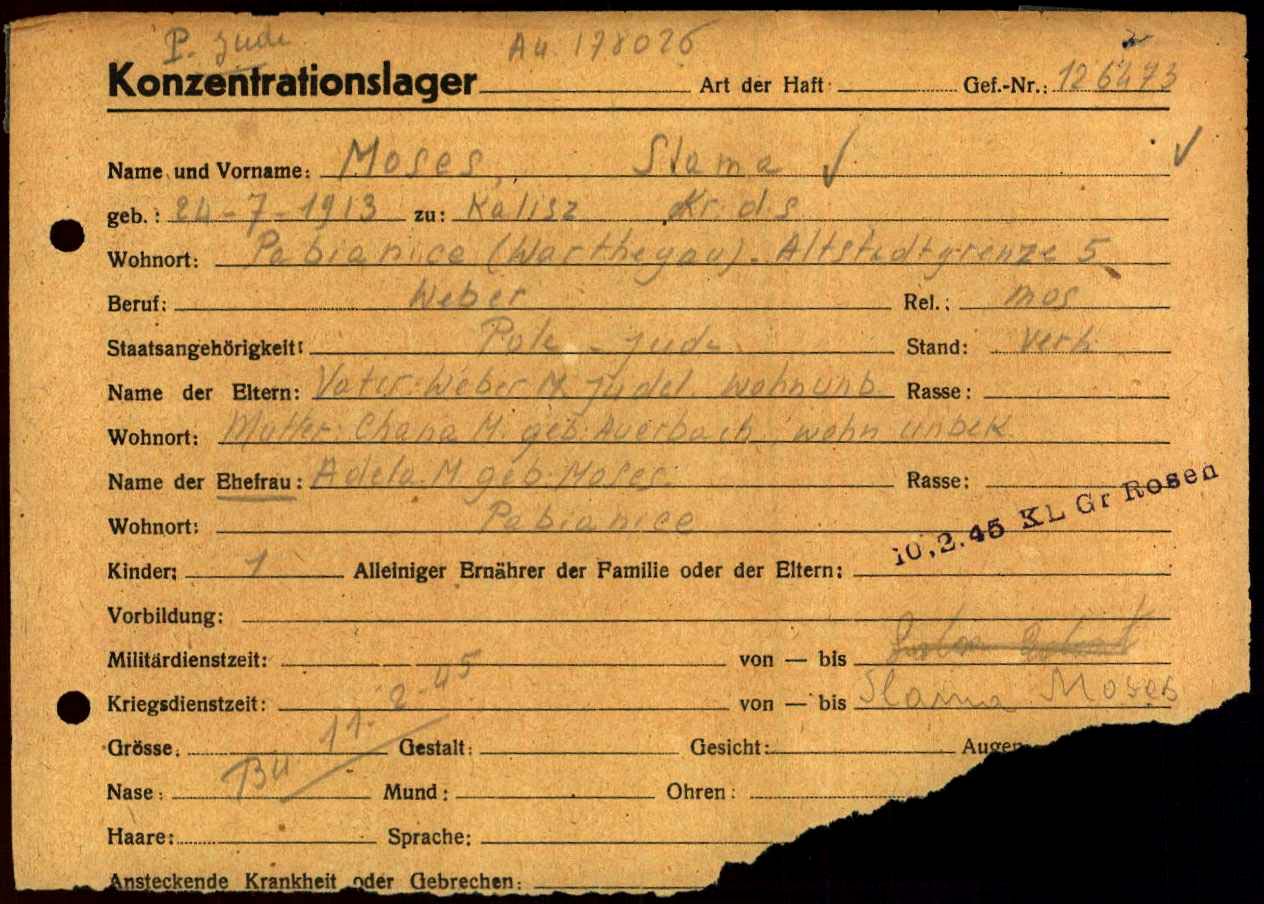 P. Jude Au 178026
Konzentrationslager Art der Haft Gef.-Nr.: 126473
Name und Vorname: Moses, Slama
geb.: 24-7-1913 zu: Kalisz Kr. d. s
Wohnort: Pabianice (Warthegau). Altstadtgrenze 5
Beruf: Weber Rel.: mos
Staatsangehörigkeit: Pole - Jude Stand: verh
Name der Eltern: Vater: Weber M. Judel. wohn unb. Rasse:
Wohnort: Mutter: Chana M. geb. Auerbach, wohn unbek
Name der Ehefrau: Adela M. geb. Moses. Rasse:
Wohnort: Pabianice
10.2.45 KL Gr Rosen
Kinder: 1 Alleiniger Ernährer der Familie oder der Eltern:
Vorbildung:
Militärdienstzeit: von — bis
Kriegsdienstzeit: von — bis Slama Moses
Bu 11-2-45
Grösse: Gestalt: Gesicht: Augen
Nase: Mund: Ohren:
Haare: Sprache:
Ansteckende Krankheit oder Gebrechen: